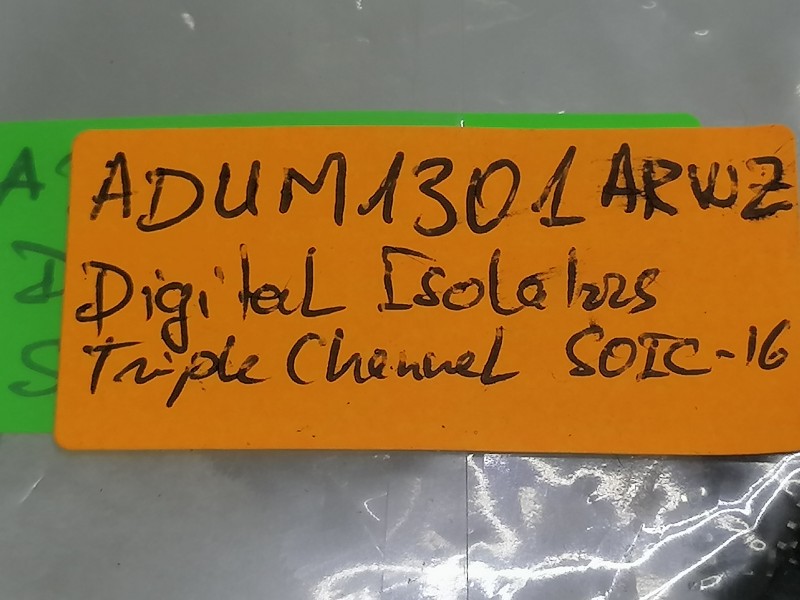 ADUM1301ARWZ
Digital Isolators
Triple Channel SOIC-16
A
D
S